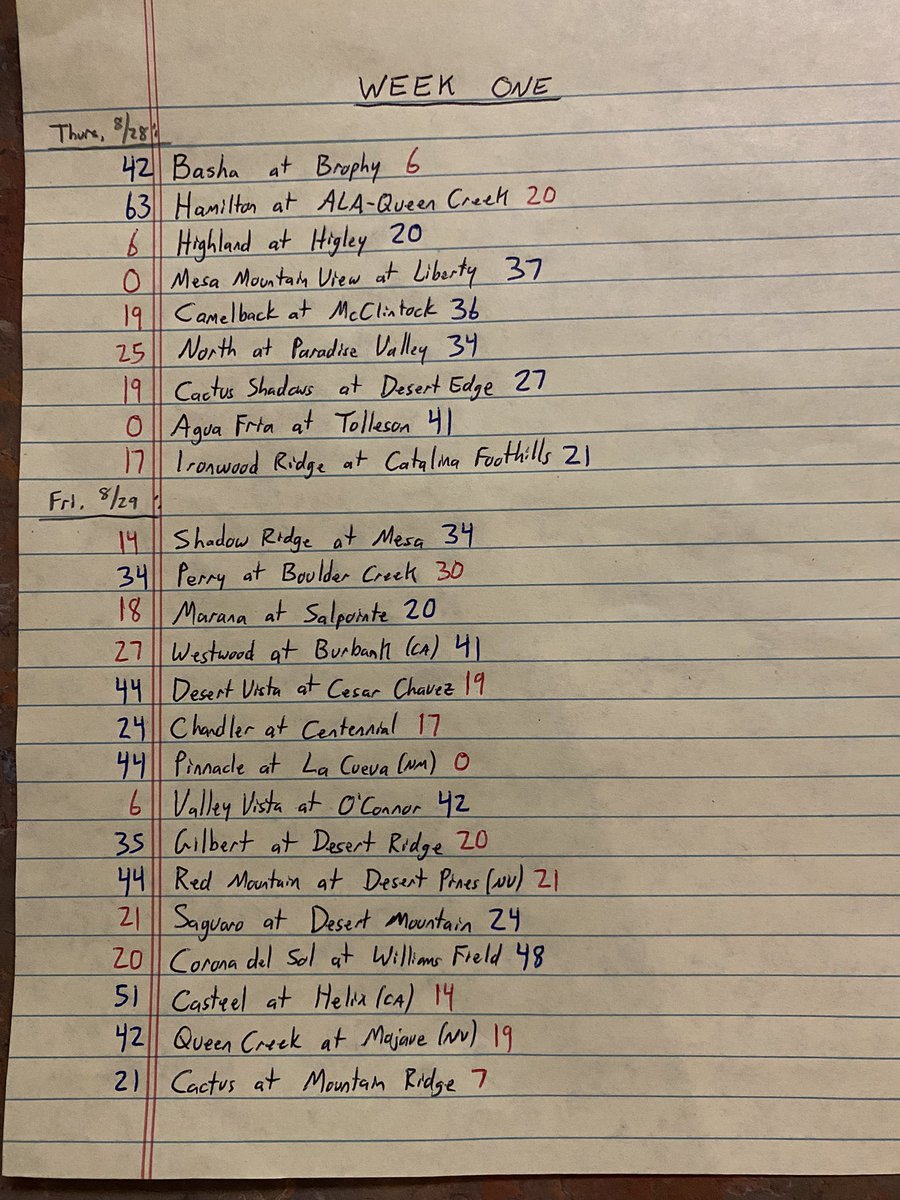 WEEK ONE
Thurs, 8/28:
42 Basha at Brophy 6
63 Hamilton at ALA-Queen Creek 20
6 Highland at Higley 20
0 Mesa Mountain View at Liberty 37
19 Camelback at McClintock 36
25 North at Paradise Valley 34
19 Cactus Shadows at Desert Edge 27
0 Agua Fria at Tolleson 41
17 Ironwood Ridge at Catalina Foothills 21
Fri. 8/29:
14 Shadow Ridge at Mesa 34
34 Perry at Boulder Creek 30
18 Marana at Salpointe 20
27 Westwood at Burbank (CA) 41
44 Desert Vista at Cesar Chavez 19
24 Chandler at Centennial 17
44 Pinnacle at La Cueva (NM) 0
6 Valley Vista at O'Connor 42
35 Gilbert at Desert Ridge 20
44 Red Mountain at Desert Pines (NV) 21
21 Saguaro at Desert Mountain 24
20 Corona del Sol at Williams Field 48
51 Casteel at Helix (CA) 14
42 Queen Creek at Mojave (NV) 19
21 Cactus at Mountain Ridge 7